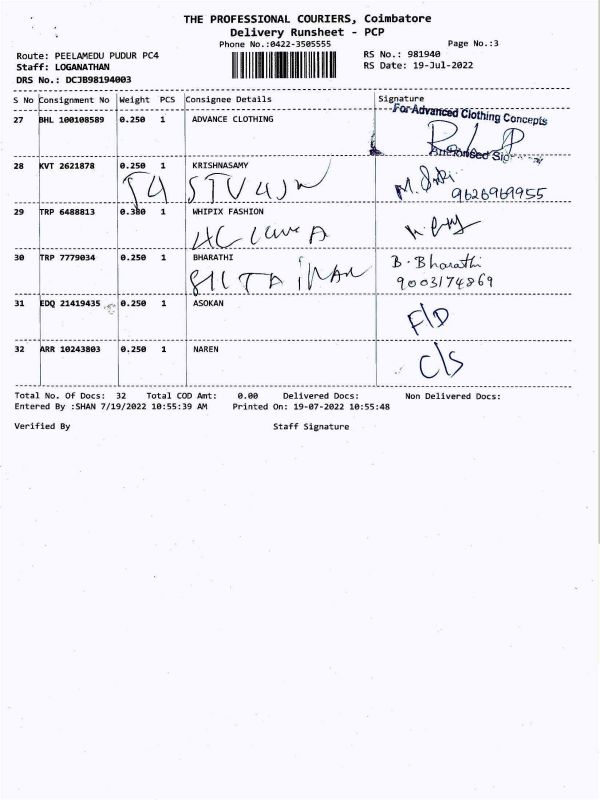 THE PROFESSIONAL COURIERS, Coimbatore
Delivery Runsheet - PCP
Phone No.:0422-3505555
Page No.:3
Route: PEELAMEDU PUDUR PC4
RS No.: 981940
Staff: LOGANATHAN
RS Date: 19-Jul-2022
DRS No.: DCJB98194003
S No Consignment No Weight PCS Consignee Details Signature
For Advanced Clothing Concepts
27 BHL 100108589 0.250 1 ADVANCE CLOTHING
Authorised
28 KVT 2621878 0.250 1 KRISHNASAMY
9626969955
29 TRP 6488813 0.380 1 WHIPIX FASHION
30 TRP 7779034 0.250 1 BHARATHI B. Bharathi
9003174869
31 EDQ 21419435 0.250 1 ASOKAN
F/D
32 ARR 10243803 0.250 1 NAREN
C/S
Total No. Of Docs: 32 Total COD Amt: 0.00 Delivered Docs: Non Delivered Docs:
Entered By :SHAN 7/19/2022 10:55:39 AM Printed On: 19-07-2022 10:55:48
Verified By Staff Signature